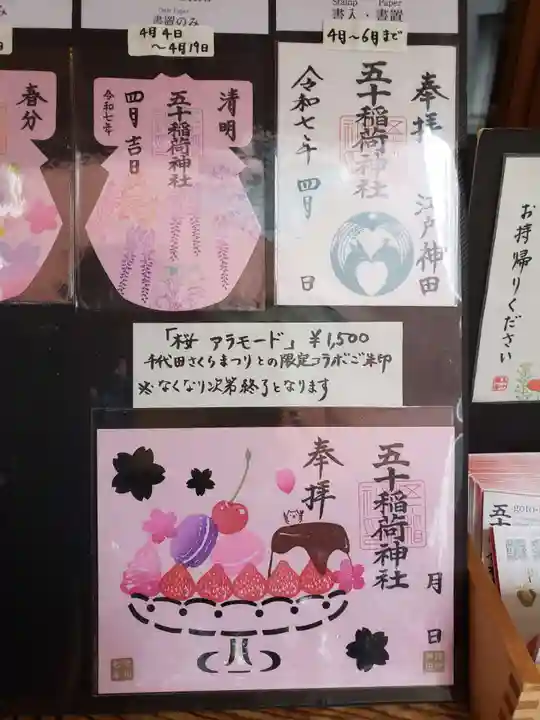 Date Paper
書置のみ
Stamp Paper
書入・書置
4月4日
～4月19日
4月～6月まで
春分
清明
五十稲荷神社
四月吉日
令和七年
奉拝
江戸神田
五十稲荷神社
令和七年 四月 日
お持帰りください
「桜 アラモード」 ¥1,500
千代田さくらまつりとの限定コラボご朱印
※なくなり次第終了となります
奉拝
五十稲荷神社
月 日
五十